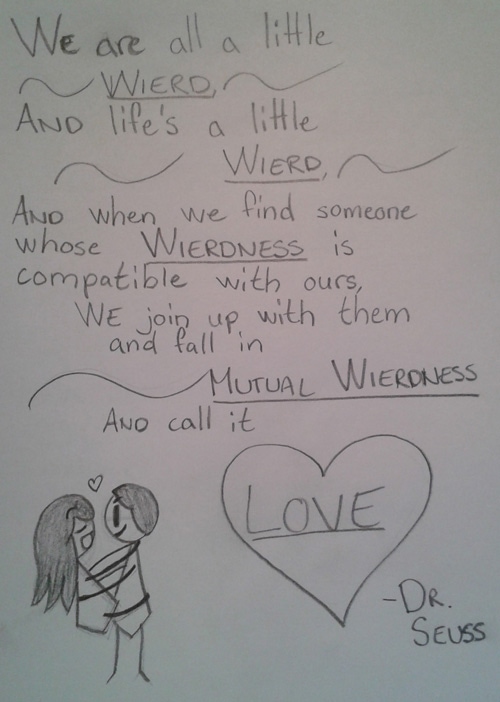 We are all a little
WIERD,
AND life's a little
WIERD,
AND when we find someone
whose WIERDNESS is
compatible with ours,
WE join up with them
and fall in
MUTUAL WIERDNESS
AND call it
LOVE
-DR.
SEUSS